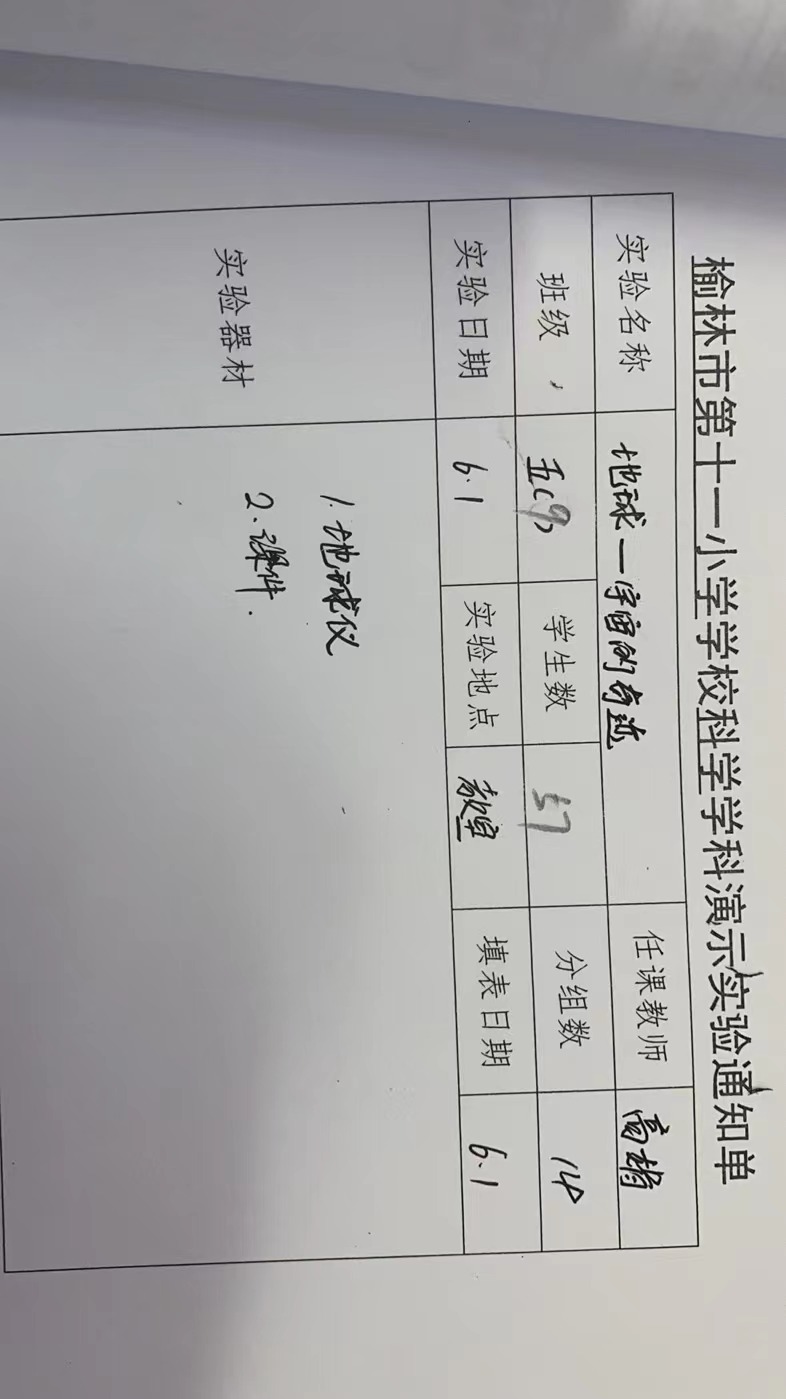 榆林市第十一小学学校科学学科演示实验通知单
实验名称 地球—宇宙的奇迹 任课教师 高楷
班级 五(9) 学生数 57 分组数 14
实验日期 6.1 实验地点 教室 填表日期 6.1
实验器材
1.地球仪
2.课件.